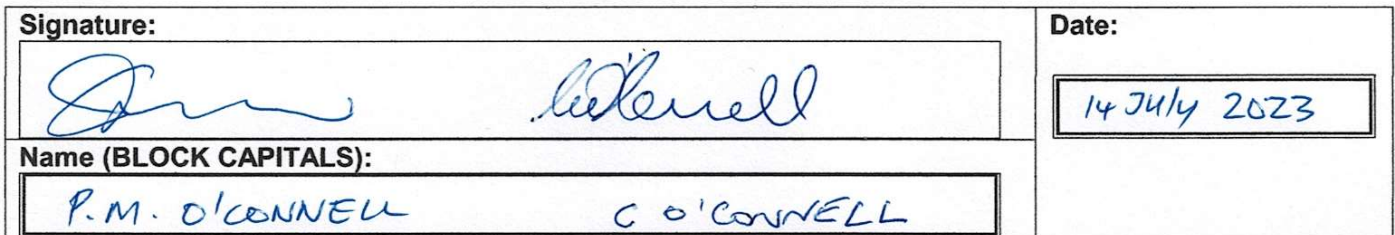 Signature:
Date:
14 July 2023
Name (BLOCK CAPITALS):
P.M. O'CONNELL C O'CONNELL